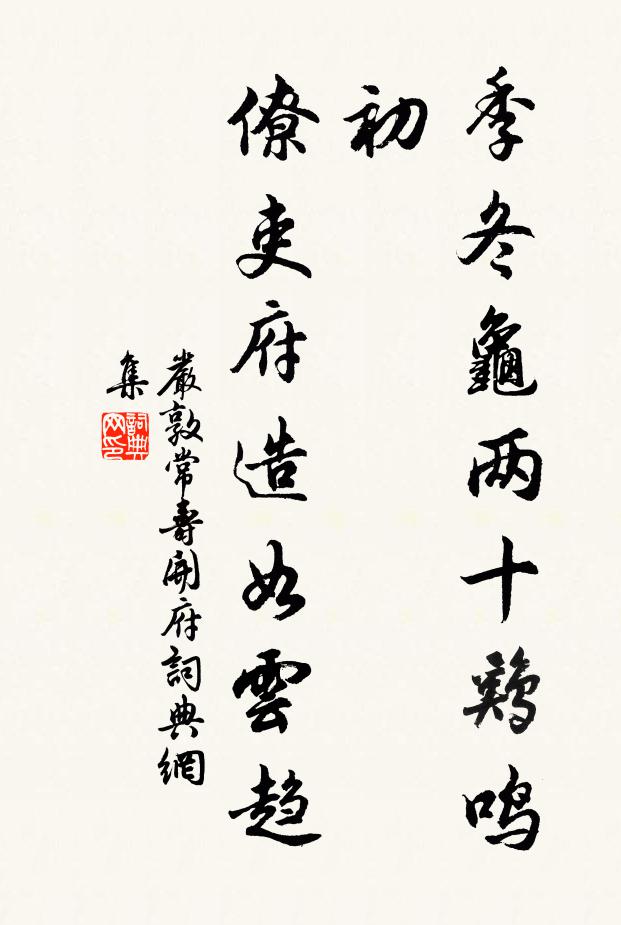 季冬龜两十鷄鳴
初
僚吏府造如雲趋
嚴敦常壽開府詞典網
集
詞典
网印